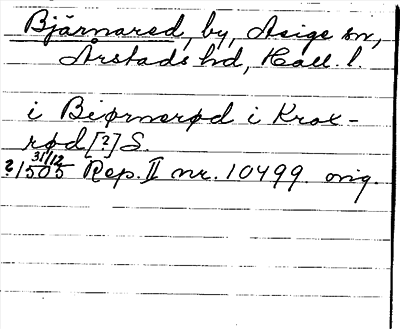 Bjärnared, by, Asige sn,
Årstads hd, Hall. l.
i Biørnerød i Krox-
rød [?] S.
31/12
?1505 Rep. II nr. 10499 orig.